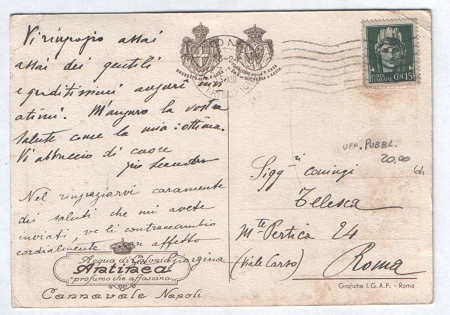 Vi ringrazio assai
assai dei gentili
e graditissimi auguri
M'auguro la vostra
salute come la mia: ottima.
Vi abbraccio di cuore
zio Leandro
Nel ringraziarvi caramente
dei saluti che mi avete
inviati ve li contraccambio
cordialmente con affetto
Giorgina
Acqua di Colonia
Antinea
profumo che affascina
Cannavale Napoli
POSTE ITALIANE CENT. 15
UFF. PUBBL.
20,00
Sigg.ri coniugi
Telesca
M.te Pertica 24
(Viale Carso)
Roma
Grafiche I.G.A.P. - Roma